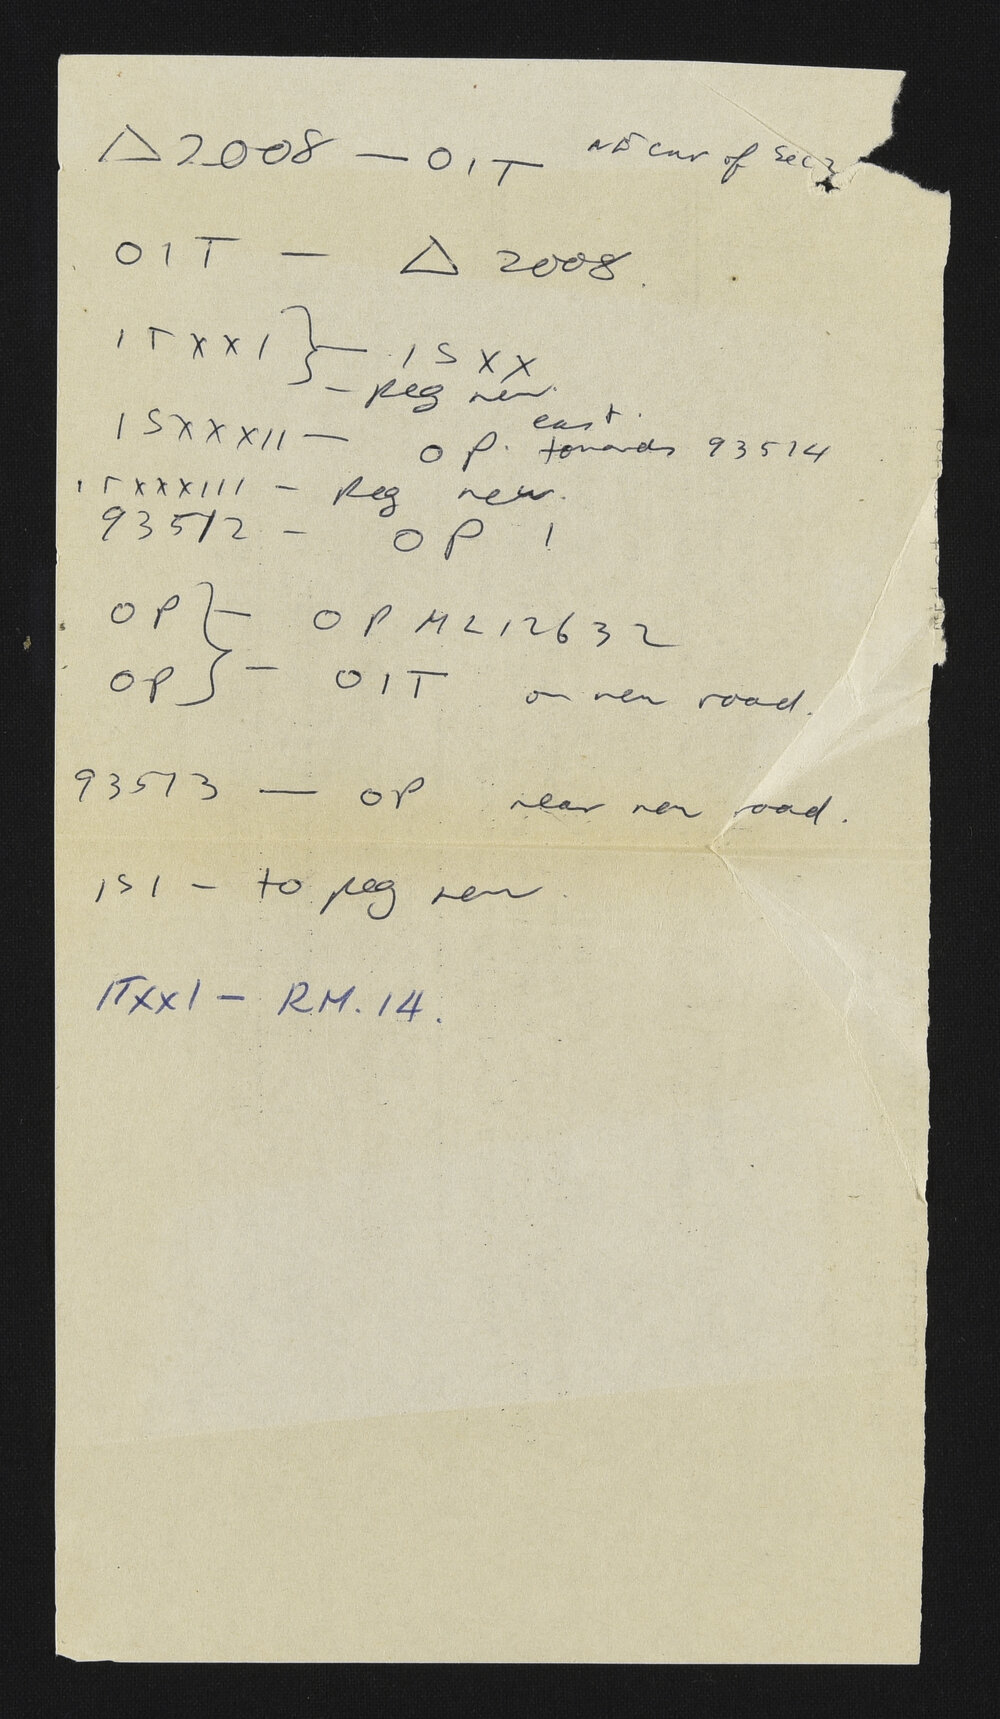 △ 2008 — OIT NE cnr of Sec 2
OIT — △ 2008.
ITXXI } — ISXX
— peg new.
ISXXXII — OP. east towards 93514
ITXXXIII — Peg new.
93512 — OP 1
OP } — OP ML12632
OP } — OIT on new road.
93513 — OP near new road.
ISI — to peg new.
ITXXI — RM. 14.